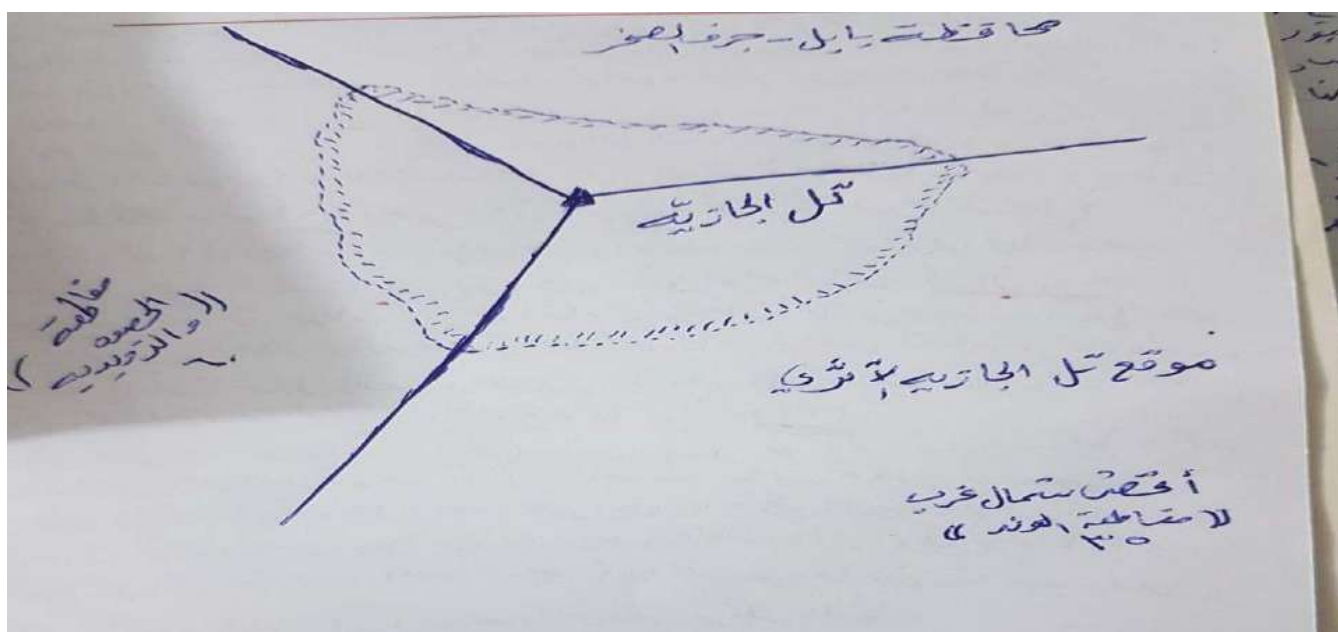 محافظة بابل - جرف الصخر
تل الجازيه
مقاطعة
الحصوه
((والزويديه))
٦٠
موقع تل الجازيه الأثري
أقصى شمال غرب
((مقاطعة الوند))
٣٥